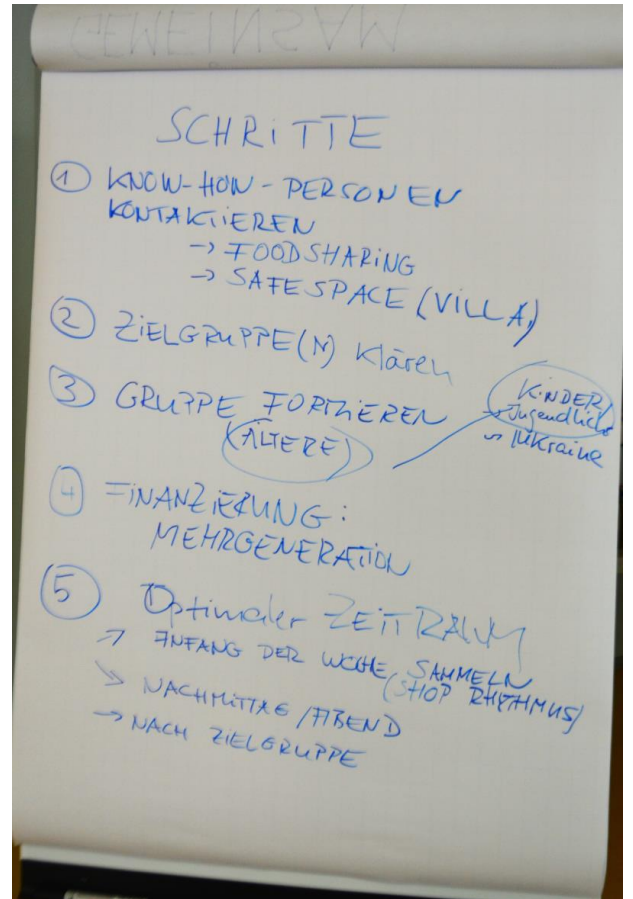 GEMEINSAM
SCHRITTE
① KNOW-HOW-PERSONEN
KONTAKTIEREN
→ FOODSHARING
→ SAFESPACE (VILLA)
② ZIELGRUPPE(N) klären
③ GRUPPE FORMIEREN
(ÄLTERE)
KINDER/
→ Jugendliche
→ Ukraine
④ FINANZIERUNG:
MEHRGENERATION
⑤ Optimaler ZEITRAUM
→ ANFANG DER WOCHE SAMMELN
(SHOP RHYTHMUS)
→ NACHMITTAG/ABEND
→ NACH ZIELGRUPPE